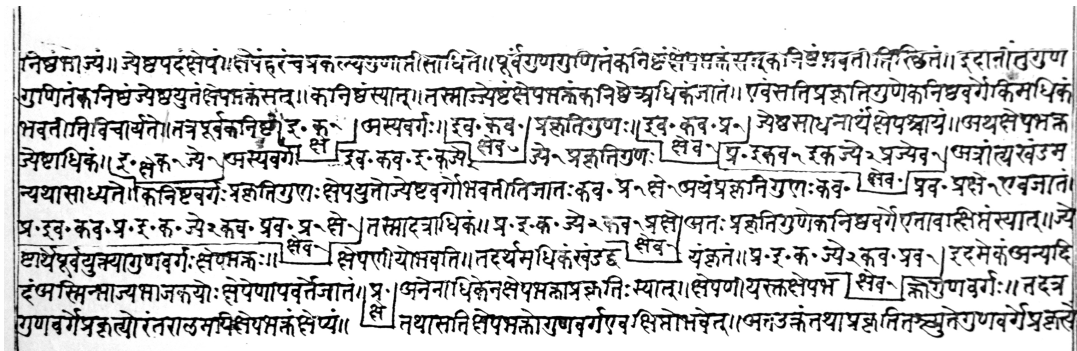 निष्ठंभाज्यं॥ज्येष्ठपदंक्षेपं॥क्षेपंहरंचप्रकल्प्यगुणाप्तीसाधिते॥पूर्वगुणगुणितंकनिष्ठंक्षेपभक्तंसत्कनिष्ठंभवतीति॥इदानींतुगुण
गुणितंकनिष्ठंज्येष्ठयुतंक्षेपभक्तंसत्॥कनिष्ठंस्यात्॥तस्माज्येष्ठंक्षेपभक्तंकनिष्ठेअधिकंजातं॥एवंसतिप्रकृतिगुणेकनिष्ठवर्गेकिमधिकं
भवतीतिविचार्यते॥तत्रपूर्वकनिष्ठं इ॰क१ क्षे१ अस्यवर्गः॥इव॰कव॰ क्षेव१ प्रकृतिगुणः॥इव॰कव॰प्र१ क्षेव१ ज्येष्ठसाधनार्थंक्षेपश्चायं॥अथक्षेपभक्त
ज्येष्ठाधिकं॥इ॰क१ज्ये१ क्षे१ अस्यवर्गो इव॰कव॰इ॰कज्ये२ ज्येव१ प्रकृतिगुणः प्र॰इवकव१इकज्ये२प्रज्येव१ क्षेव१ अत्रांत्यखंडम
न्यथासाध्यते॥कनिष्टवर्गःप्रकृतिगुणःक्षेपयुतोज्येष्टवर्गोभवतीतिजातःकव॰प्र१क्षे१अयंप्रकृतिगुणःकव॰ प्रव॰प्रक्षे१एवंजातं॥
प्र॰इव॰कव॰प्र॰इ॰क॰ज्ये२कव॰प्रव॰प्र१क्षे१ क्षेव१ तस्मादत्राधिकं॥प्र॰इ॰क॰ज्ये२कव॰प्रक्षे१ क्षेव१ अतःप्रकृतिगुणेकनिष्ठवर्गेएतावत्क्षिप्तंस्यात्॥ज्ये
ष्टार्थेपूर्वयुक्त्यागुणवर्गःक्षेपभक्तः॥ क्षेपणीयोभवति॥तदर्थमधिकंखंडद्व यंकृतं॥प्र॰इ॰क॰ज्ये२कव॰प्रव१ क्षेव१ इदमेकंअन्यदि
दंअस्मिन्भाज्यभाजकयोःक्षेपेणापवर्तेजातं॥प्र१ क्षे१ अनेनाधिकेनक्षेपभक्ताप्रकृतिःस्यात्॥क्षेपणीयस्तुक्षेपभ क्तोगुणवर्गः॥तदत्र
गुणवर्गप्रकृत्योरंतरालमपिक्षेपभक्तंक्षेप्यं॥ तथासतिक्षेपभक्तोगुणवर्गएवक्षिप्तोभवेत्॥अतउक्तंतथाप्रकृतितश्च्युतेगुणवर्गेप्रकृत्यो